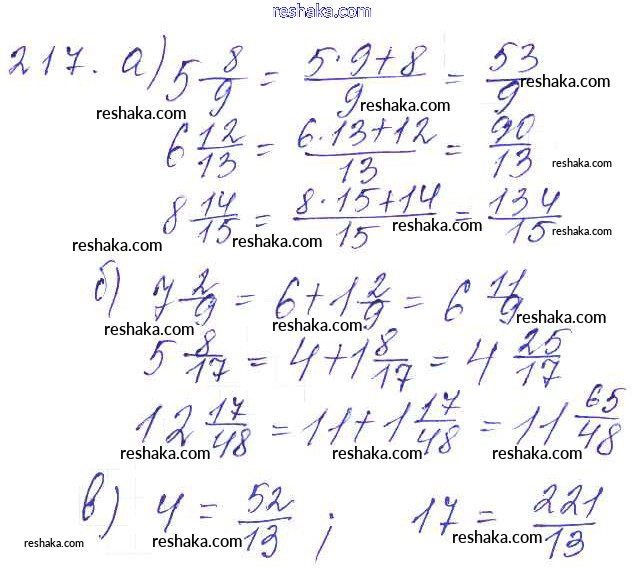 www.reshaka.com
217. а) 5 8/9 = (5·9+8)/9 = 53/9
reshaka.com reshaka.com reshaka.com
6 12/13 = (6·13+12)/13 = 90/13
reshaka.com reshaka.com reshaka.com
8 14/15 = (8·15+14)/15 = 134/15
reshaka.com reshaka.com reshaka.com reshaka.com
б) 7 2/9 = 6+1 2/9 = 6 11/9
reshaka.com reshaka.com reshaka.com
5 8/17 = 4+1 8/17 = 4 25/17
reshaka.com reshaka.com reshaka.com
12 17/48 = 11+1 17/48 = 11 65/48
reshaka.com reshaka.com reshaka.com
в) 4 = 52/13 ; 17 = 221/13
reshaka.com reshaka.com reshaka.com reshaka.com